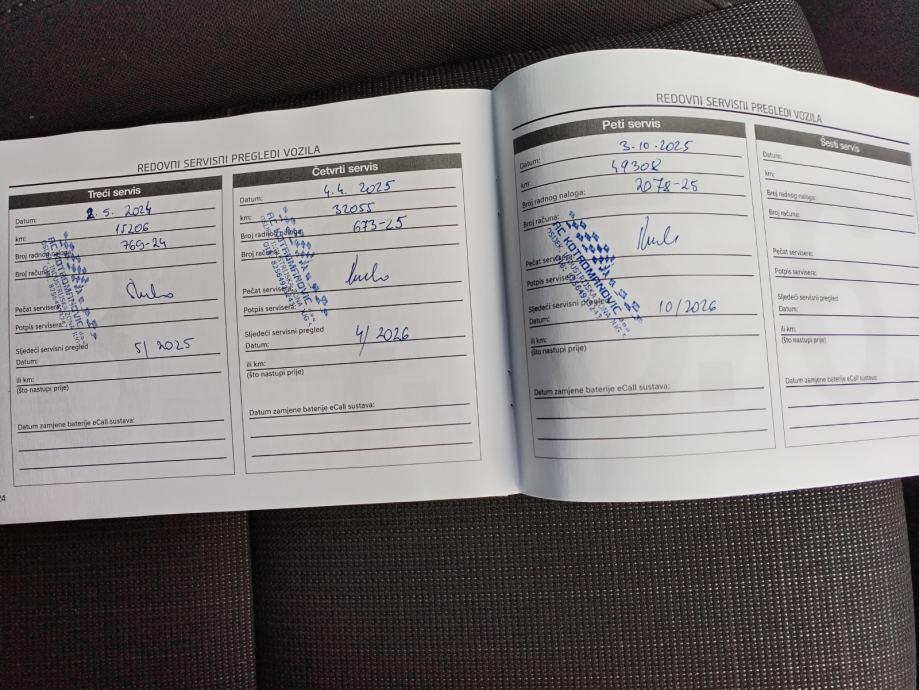 REDOVNI SERVISNI PREGLEDI VOZILA
Treći servis
Datum: 2. 5. 2024
km: 15206
Broj radnog naloga: 769-24
Broj računa:
Pečat servisera:
Potpis servisera:
Sljedeći servisni pregled
Datum: 5/2025
ili km:
(što nastupi prije)
Datum zamjene baterije eCall sustava:
24
Četvrti servis
Datum: 4.4. 2025
km: 32055
Broj radnog naloga: 673-25
Broj računa:
AC KOTROMANOVIĆ
Pečat servisera:
Potpis servisera:
Sljedeći servisni pregled
Datum: 4/2026
ili km:
(što nastupi prije)
Datum zamjene baterije eCall sustava:
REDOVNI SERVISNI PREGLEDI VOZILA
Peti servis
Datum: 3.10.2025
km: 49308
Broj radnog naloga: 2078-25
Broj računa:
AC KOTROMANOVIĆ
Pečat servisera:
Potpis servisera:
Sljedeći servisni pregled
Datum: 10/2026
ili km:
(što nastupi prije)
Datum zamjene baterije eCall sustava:
Šesti servis
Datum:
km:
Broj radnog naloga:
Broj računa:
Pečat servisera:
Potpis servisera:
Sljedeći servisni pregled
Datum:
ili km:
(što nastupi prije)
Datum zamjene baterije eCall sustava: